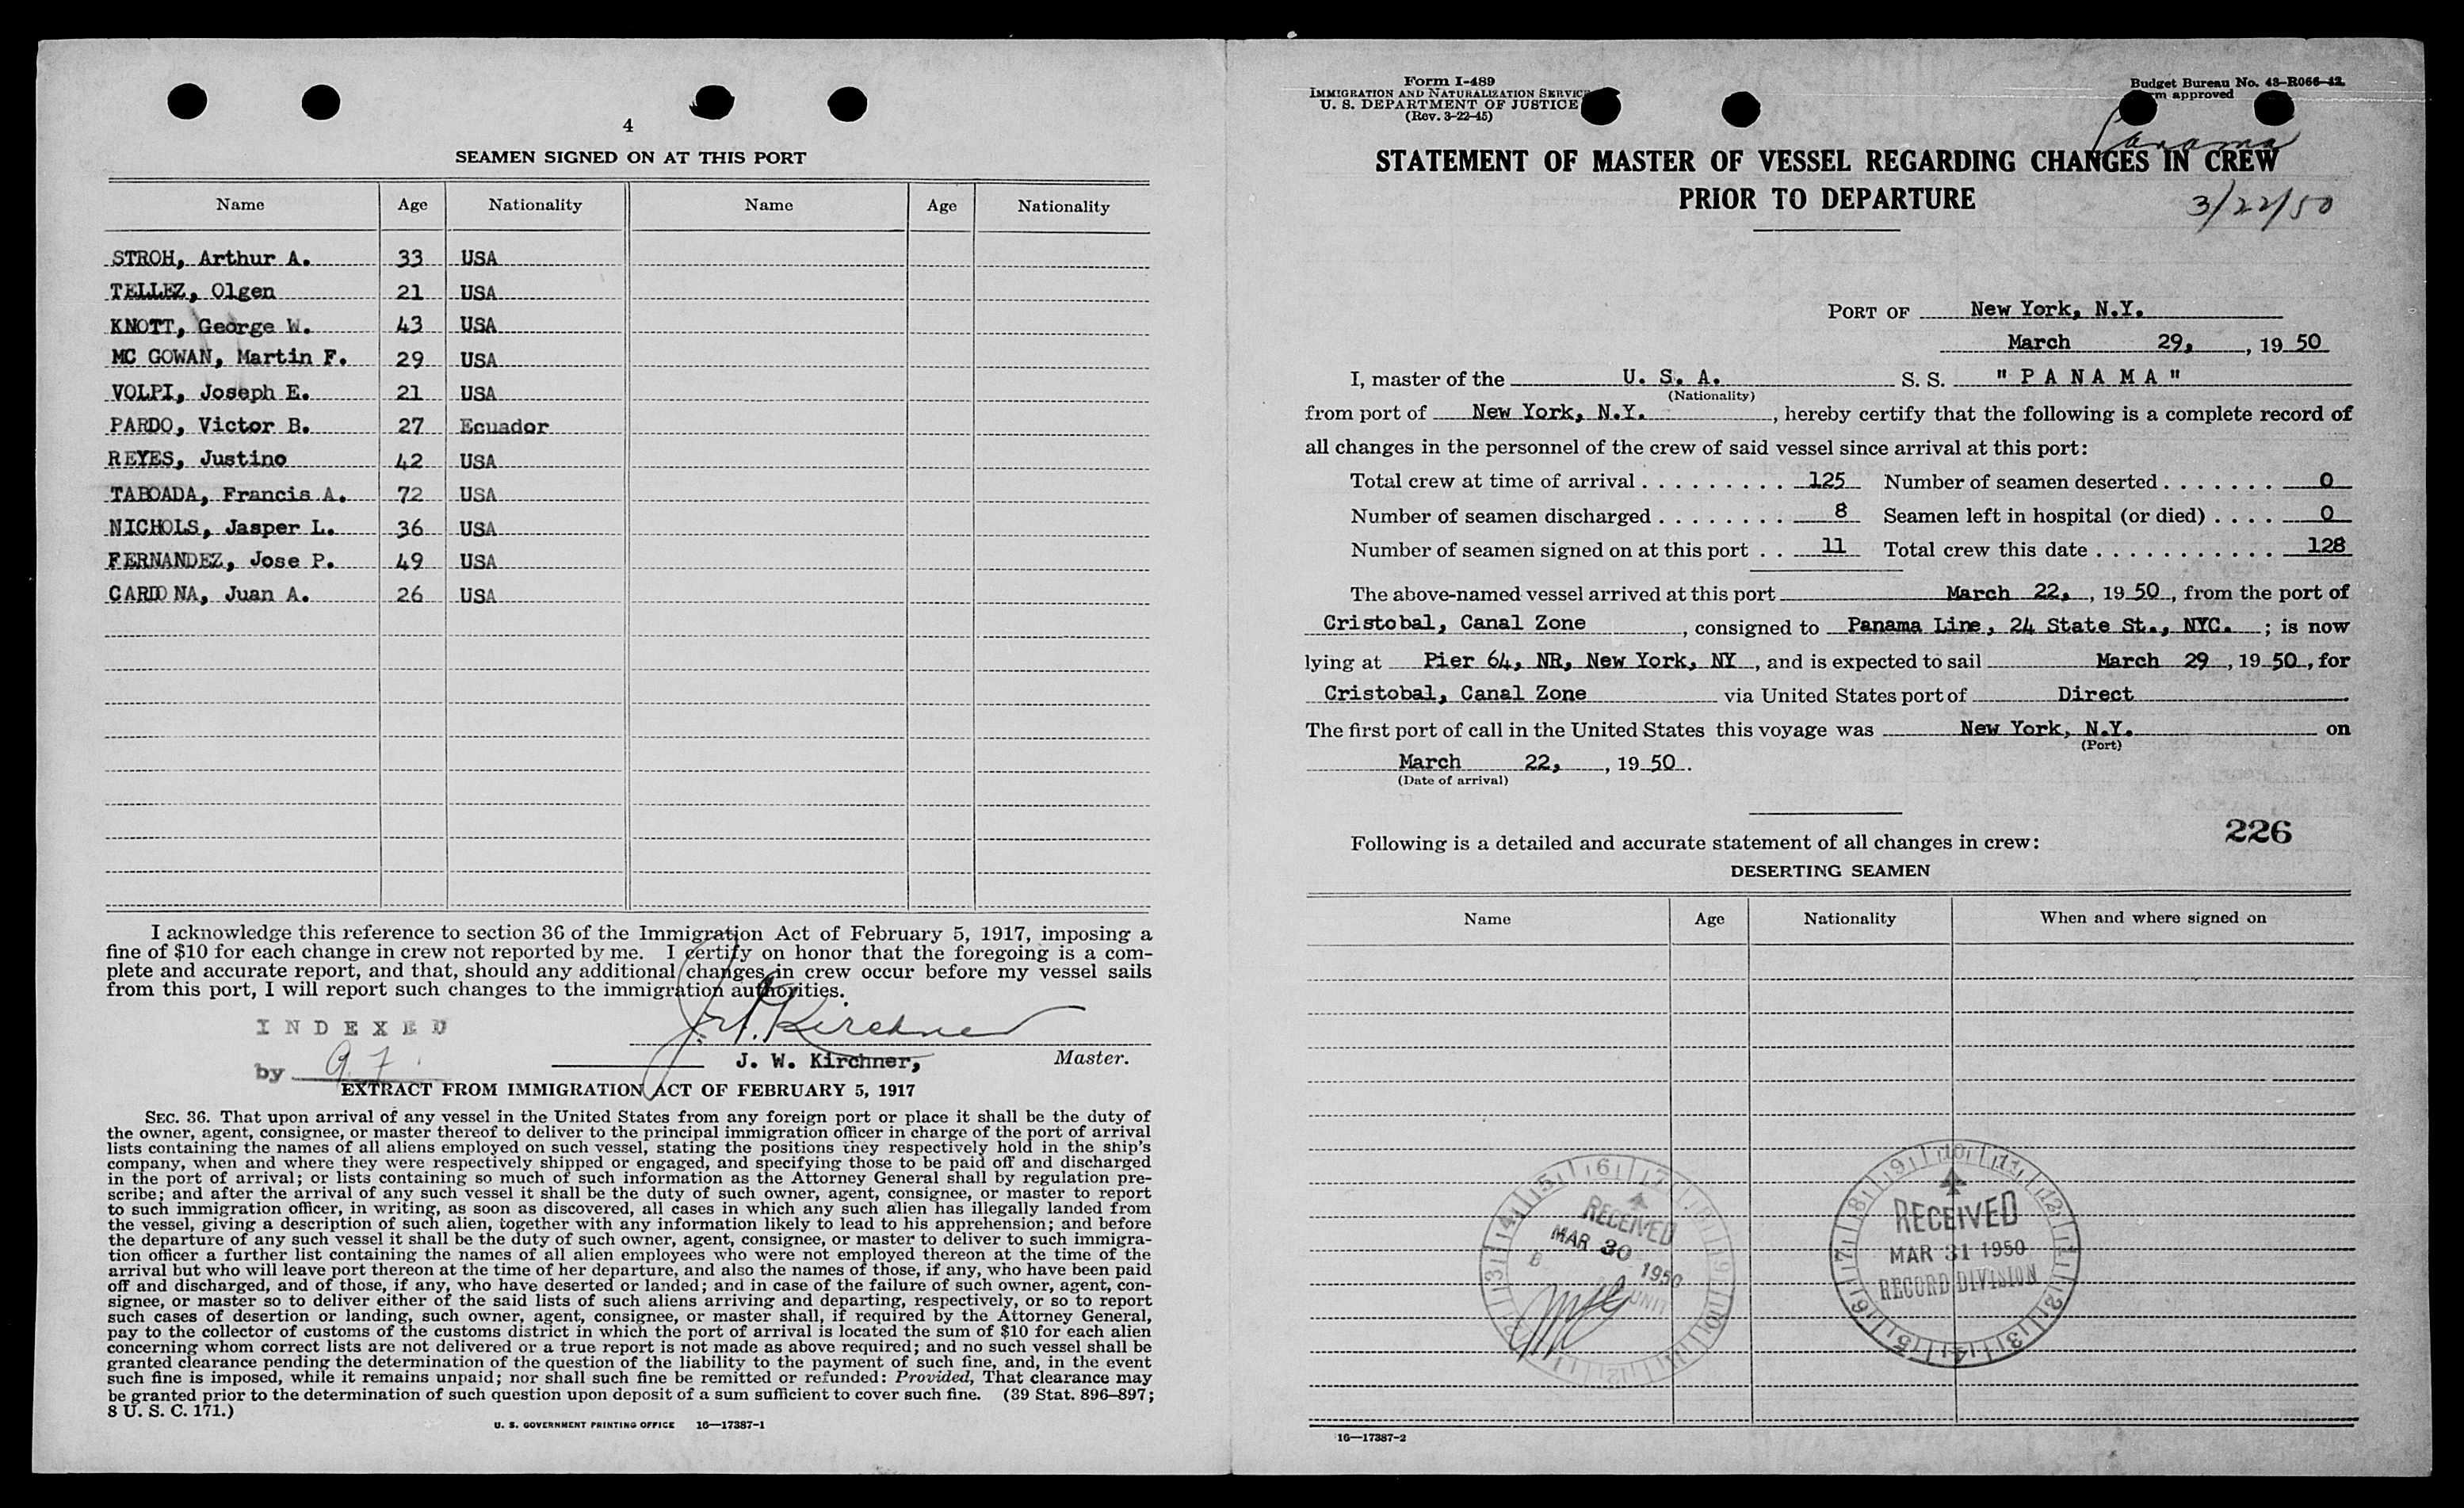 4
SEAMEN SIGNED ON AT THIS PORT
Name Age Nationality Name Age Nationality
STROH, Arthur A. 33 USA
TELLEZ, Olgen 21 USA
KNOTT, George W. 43 USA
MC GOWAN, Martin F. 29 USA
VOLPI, Joseph E. 21 USA
PARDO, Victor B. 27 Ecuador
REYES, Justino 42 USA
TABOADA, Francis A. 72 USA
NICHOLS, Jasper L. 36 USA
FERNANDEZ, Jose P. 49 USA
CARDONA, Juan A. 26 USA
I acknowledge this reference to section 36 of the Immigration Act of February 5, 1917, imposing a
fine of $10 for each change in crew not reported by me. I certify on honor that the foregoing is a com-
plete and accurate report, and that, should any additional changes in crew occur before my vessel sails
from this port, I will report such changes to the immigration authorities.
INDEXED
J. W. Kirchner
by
J. W. Kirchner, Master.
EXTRACT FROM IMMIGRATION ACT OF FEBRUARY 5, 1917
SEC. 36. That upon arrival of any vessel in the United States from any foreign port or place it shall be the duty of
the owner, agent, consignee, or master thereof to deliver to the principal immigration officer in charge of the port of arrival
lists containing the names of all aliens employed on such vessel, stating the positions they respectively hold in the ship's
company, when and where they were respectively shipped or engaged, and specifying those to be paid off and discharged
in the port of arrival; or lists containing so much of such information as the Attorney General shall by regulation pre-
scribe; and after the arrival of any such vessel it shall be the duty of such owner, agent, consignee, or master to report
to such immigration officer, in writing, as soon as discovered, all cases in which any such alien has illegally landed from
the vessel, giving a description of such alien, together with any information likely to lead to his apprehension; and before
the departure of any such vessel it shall be the duty of such owner, agent, consignee, or master to deliver to such immigra-
tion officer a further list containing the names of all alien employees who were not employed thereon at the time of the
arrival but who will leave port thereon at the time of her departure, and also the names of those, if any, who have been paid
off and discharged, and of those, if any, who have deserted or landed; and in case of the failure of such owner, agent, con-
signee, or master so to deliver either of the said lists of such aliens arriving and departing, respectively, or so to report
such cases of desertion or landing, such owner, agent, consignee, or master shall, if required by the Attorney General,
pay to the collector of customs of the customs district in which the port of arrival is located the sum of $10 for each alien
concerning whom correct lists are not delivered or a true report is not made as above required; and no such vessel shall be
granted clearance pending the determination of the question of the liability to the payment of such fine, and, in the event
such fine is imposed, while it remains unpaid; nor shall such fine be remitted or refunded: Provided, That clearance may
be granted prior to the determination of such question upon deposit of a sum sufficient to cover such fine. (39 Stat. 896–897;
8 U. S. C. 171.)
U. S. GOVERNMENT PRINTING OFFICE 16—17387-1
Form I-489
IMMIGRATION AND NATURALIZATION SERVICE
U. S. DEPARTMENT OF JUSTICE
(Rev. 3-22-45)
Budget Bureau No. 43-R066-42
approved
Panama
STATEMENT OF MASTER OF VESSEL REGARDING CHANGES IN CREW
PRIOR TO DEPARTURE
3/22/50
PORT OF New York, N.Y.
March 29, , 19 50
I, master of the U. S. A. S. S. "PANAMA"
(Nationality)
from port of New York, N.Y. , hereby certify that the following is a complete record of
all changes in the personnel of the crew of said vessel since arrival at this port:
Total crew at time of arrival . . . . . . . . . . 125 Number of seamen deserted . . . . . . . 0
Number of seamen discharged . . . . . . . . 8 Seamen left in hospital (or died) . . . . 0
Number of seamen signed on at this port . . 11 Total crew this date . . . . . . . . . . . 128
The above-named vessel arrived at this port March 22, , 19 50 , from the port of
Cristobal, Canal Zone , consigned to Panama Line, 24 State St., NYC. ; is now
lying at Pier 64, NR, New York, NY , and is expected to sail March 29 , 19 50 , for
Cristobal, Canal Zone via United States port of Direct
The first port of call in the United States this voyage was New York, N.Y. on
(Port)
March 22, , 19 50 .
(Date of arrival)
226
Following is a detailed and accurate statement of all changes in crew:
DESERTING SEAMEN
Name Age Nationality When and where signed on
RECEIVED
MAR 30 1950
UNIT
RECEIVED
MAR 31 1950
RECORD DIVISION
16—17387-2